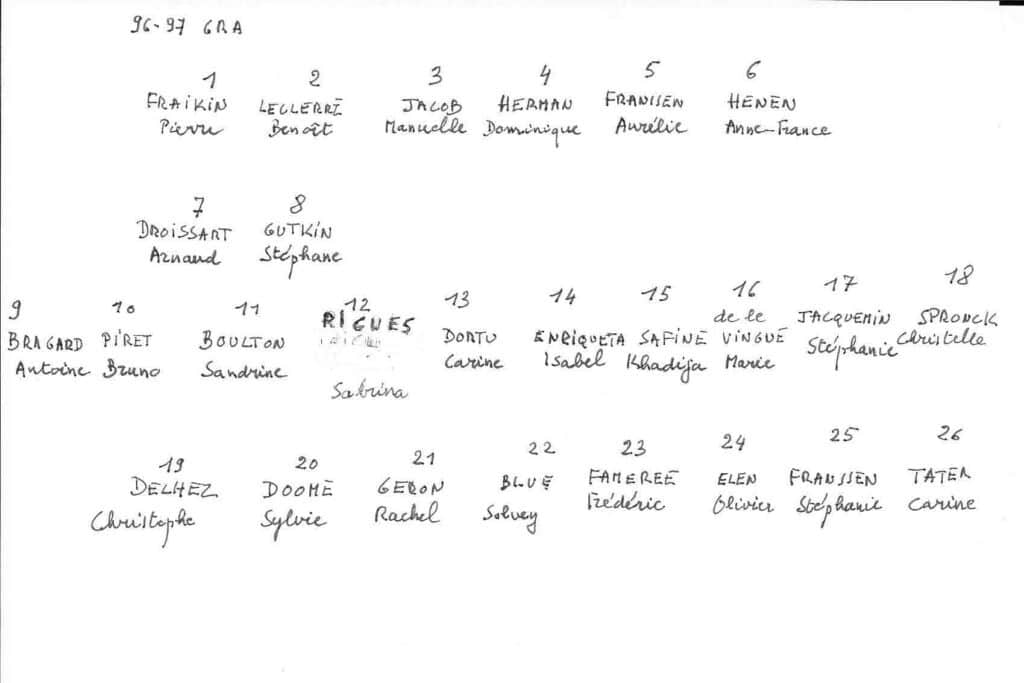 96-97 GRA
1 2 3 4 5 6
FRAIKIN LECLERRE JACOB HERMAN FRANSSEN HENEN
Pierre Benoît Manuelle Dominique Aurélie Anne-France
7 8
DROISSART GUTKIN
Arnaud Stéphane
9 10 11 12 13 14 15 16 17 18
BRAGARD PIRET BOULTON RIGUES DORTU ENRIQUETA SAFINE de le VINGUE JACQUEMIN SPRONCK
Antoine Bruno Sandrine Sabrina Carine Isabel Khadija Marie Stéphanie Christelle
19 20 21 22 23 24 25 26
DELHEZ DOOME GERON BLUE FAMEREE ELEN FRANSSEN TATER
Christophe Sylvie Rachel Solvey Frédéric Olivier Stéphanie Carine